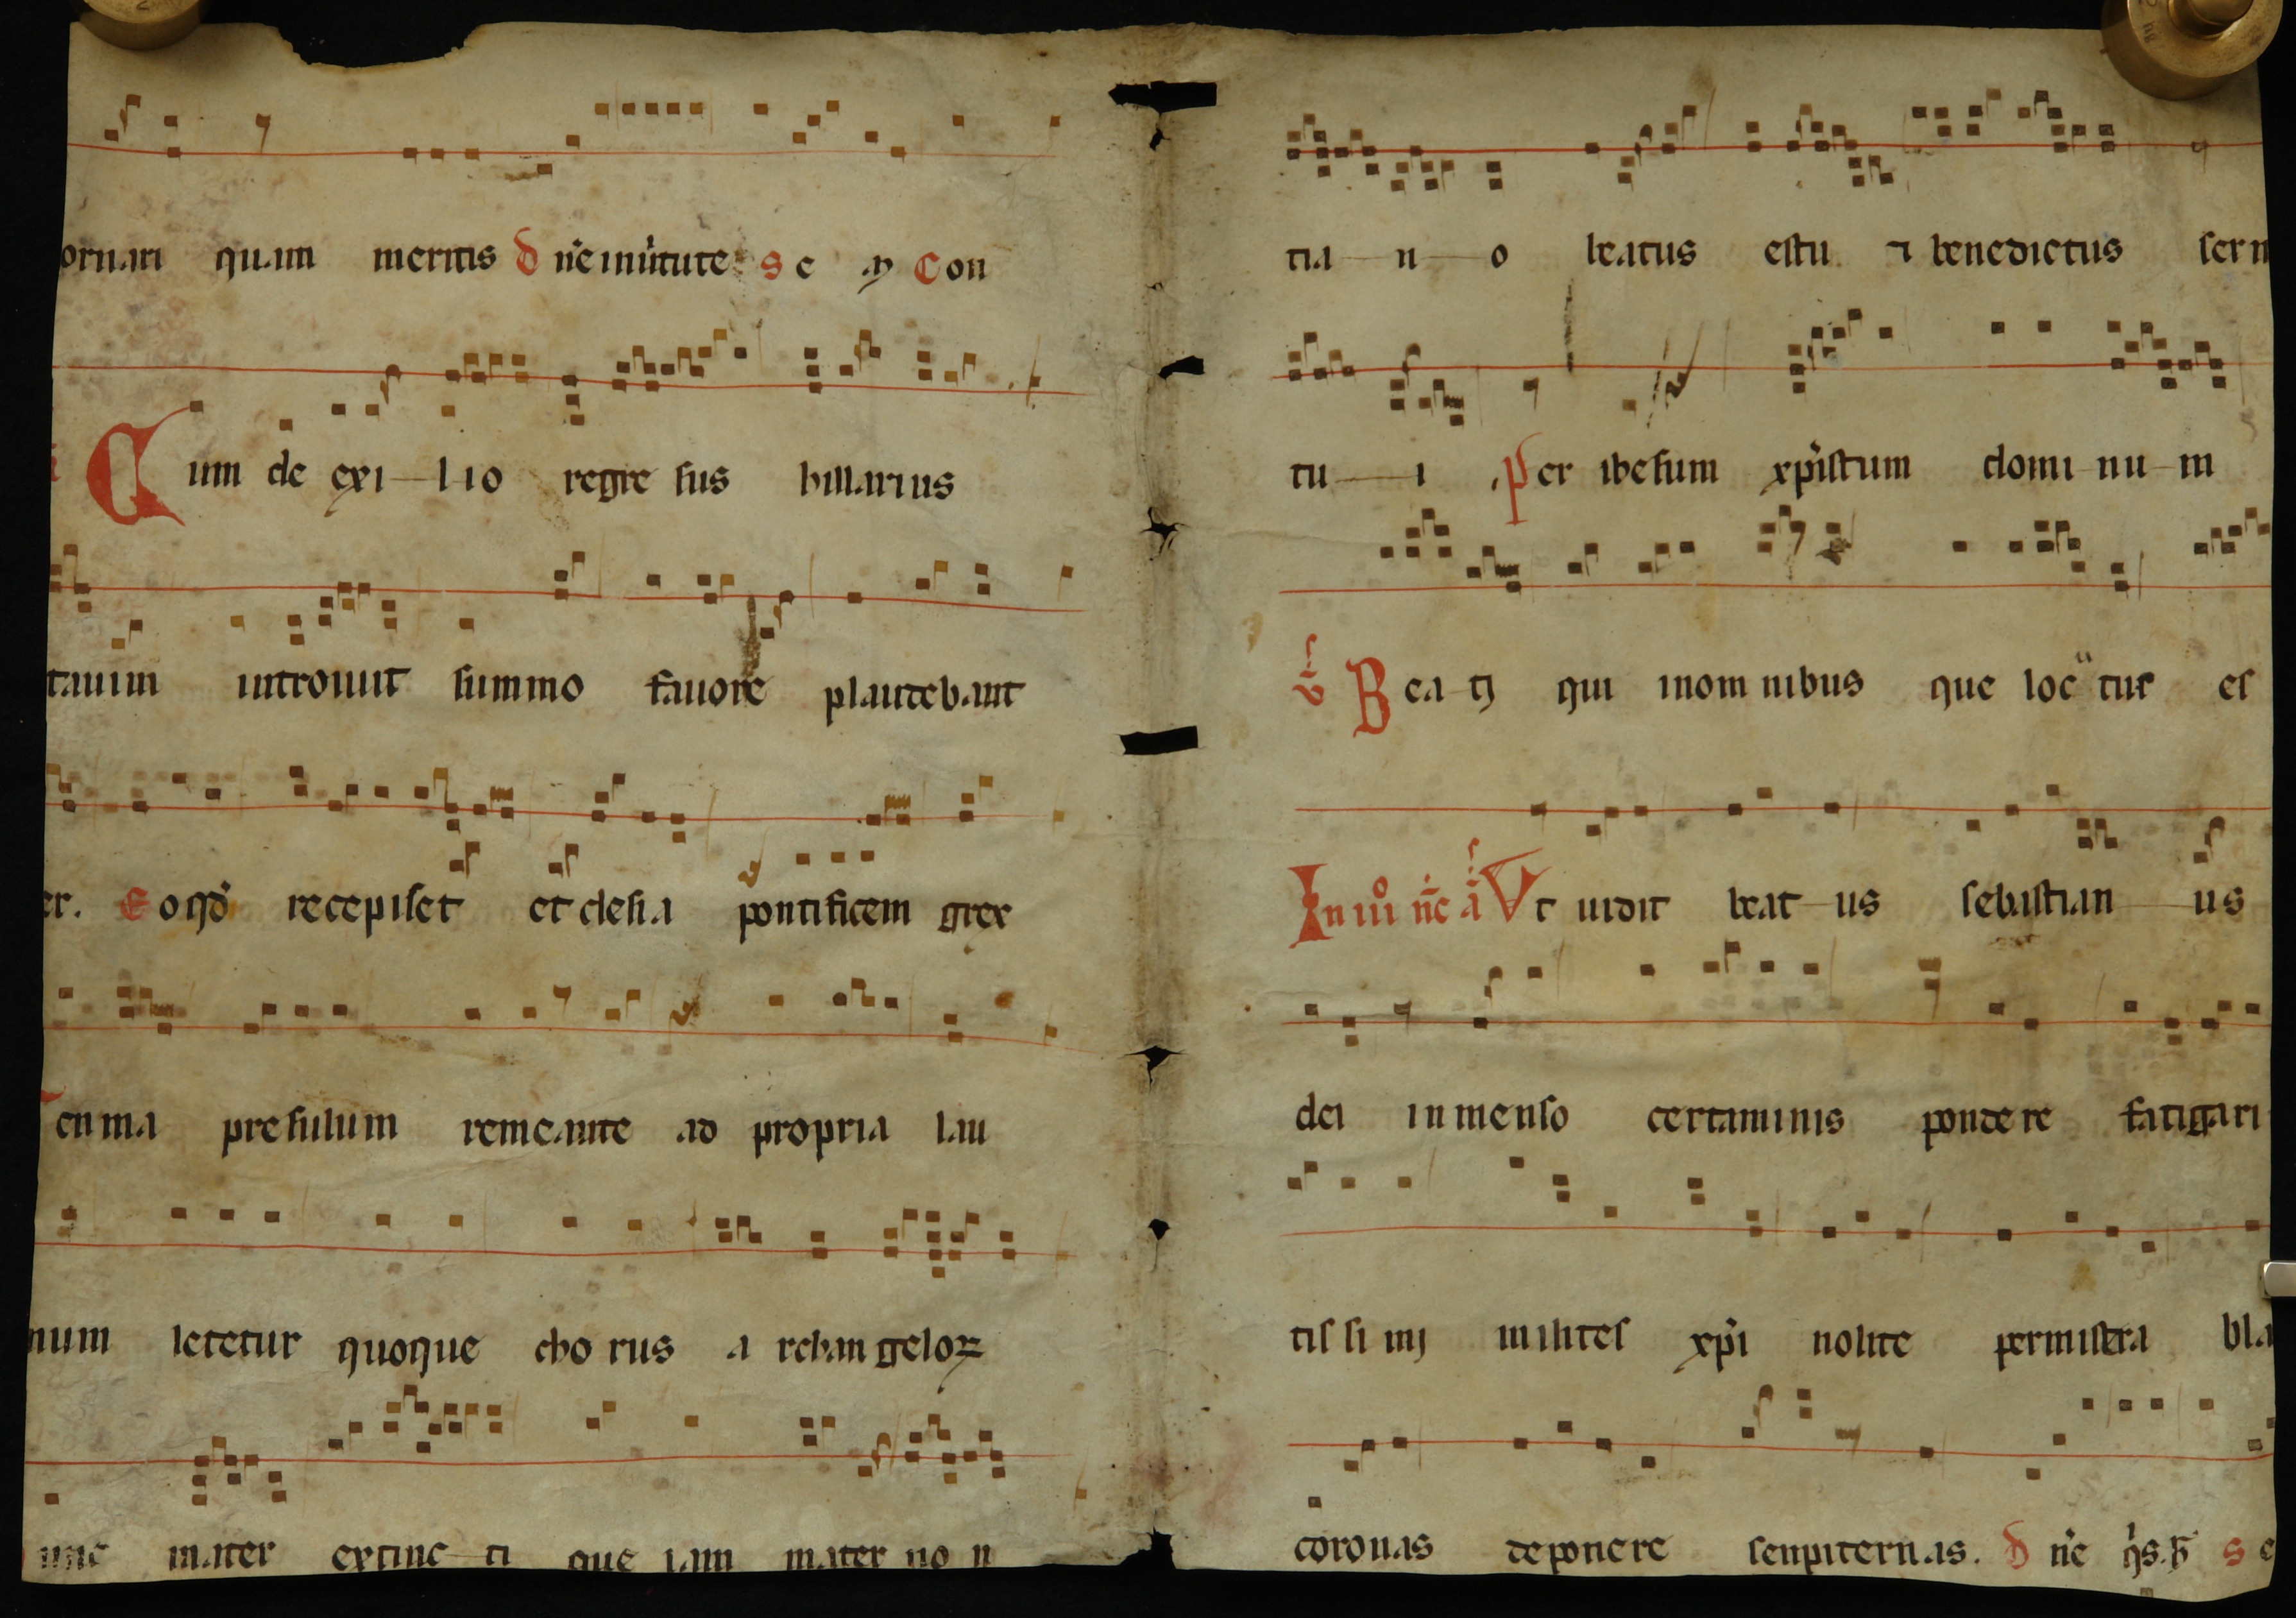 ornari quam meritis d n̄e inuitute se ꝓ Con
Cum de exi lio regre sus hillarius
tauim introiuit summo fauore plautebant
er. Eo qđ recepiset et clesia pontificem grex
enma presulum remeante ad propria lau
num letetur quoque cho rus a rchan geloꝝ
unc mater extinc ti que iam mater no n
tia n o beatus es tu ⁊ benedictus serm
tu i per ihesum xp̄istum domi nu m
Bea ti qui in om nibus que loc tur es
In iii n̄c a Vt uidit beat us sebastian us
dei in menso certaminis ponde re fatigari
tis si mi milites xp̄i nolite permistera bla
coronas deponere senpiternas. d n̄e q̄s. se